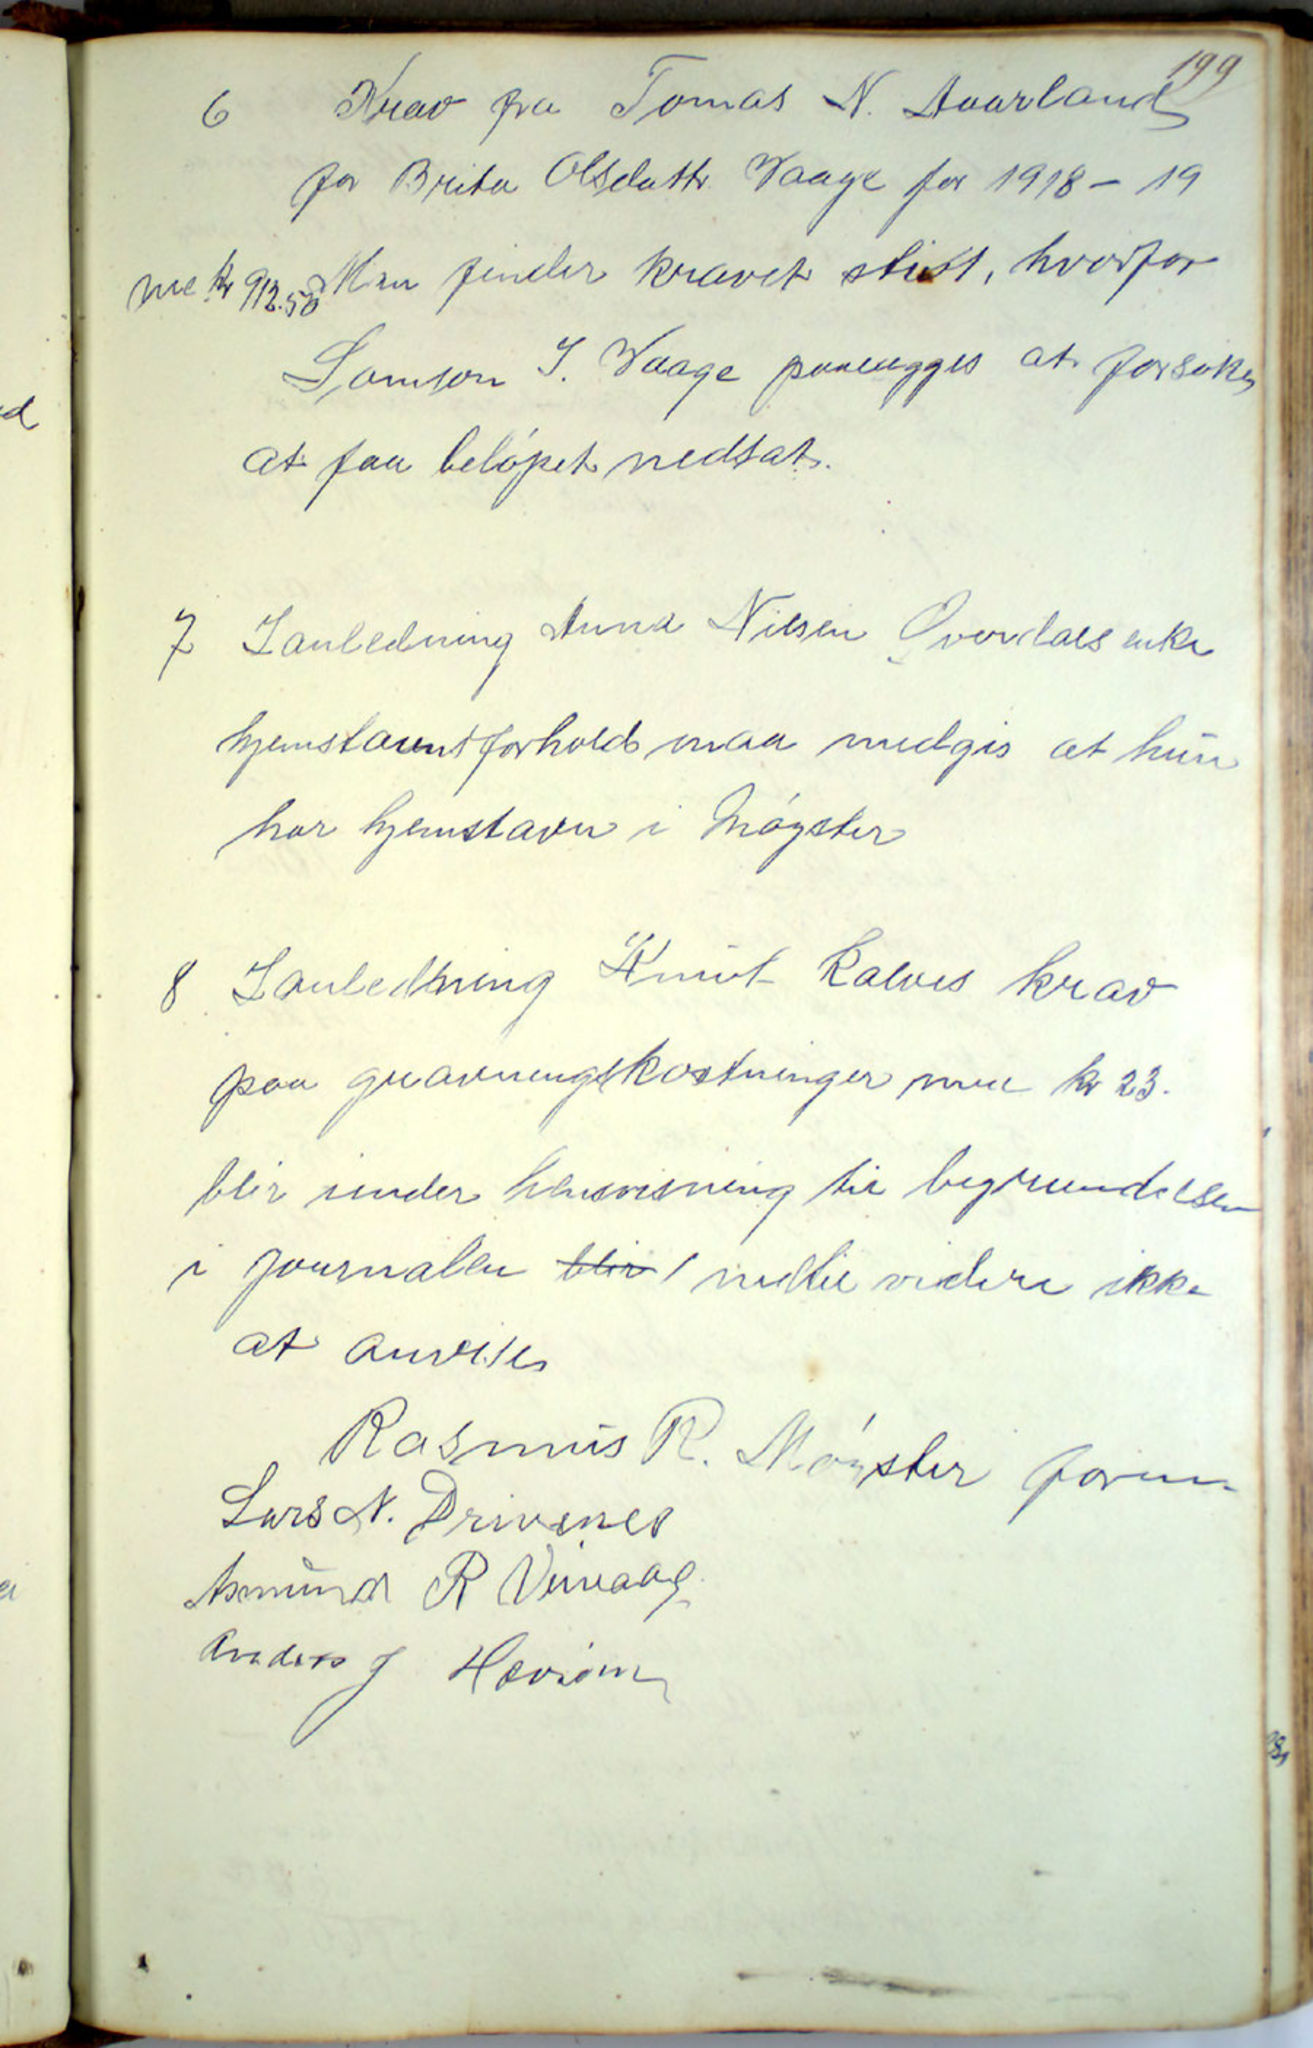 199
6 Krav fra Tomas N. Aaarland
for Brita Olsdattr Vaage for 1918 - 19
me kr 912.50 Man finder kravet stist, hvorfor
Samson J. Vaage paalegges at forsøke
at faa beløpet nedsat.
7 I anledning Anna Nilsen Øverdals enke
hjemstavnsforhold maa medgis at hun
har hjemstavn i Møgster
8 I anledning Knut Kalves krav
paa gravningskostninger me kr 23.
blir under henvisning til begrundelsen
i journalen blir / indtil videre ikke
at anvise
Rasmus R. Møgster form.
Lars N. Drivenes
Asmund R Vinvaag
Anders J Hevrøen